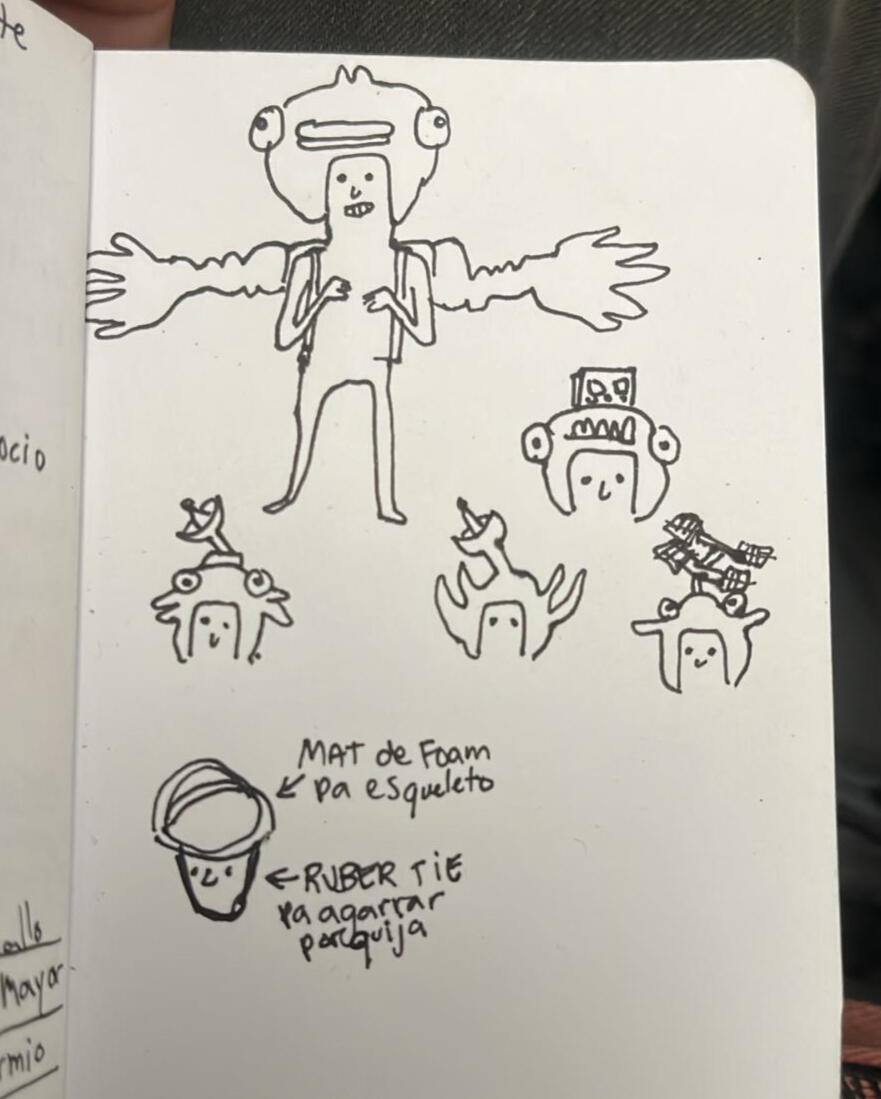 te
ocio
MAT de Foam
pa esqueleto
RUBER TIE
pa agarrar
por quija
allo
Mayor
rmio